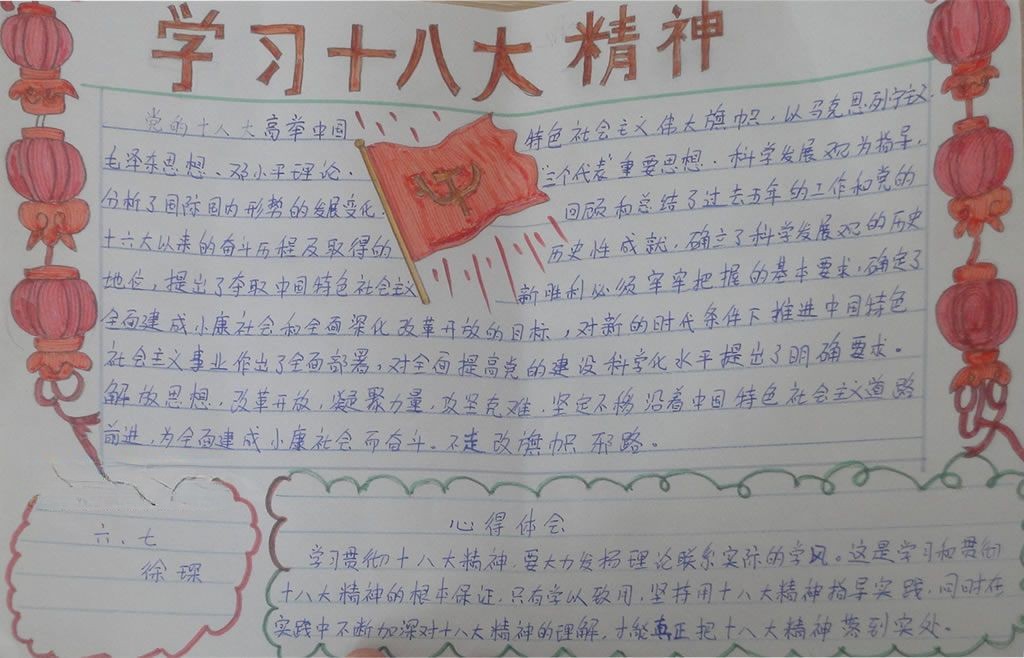 学习十八大精神
党的十八大高举中国特色社会主义伟大旗帜，以马克思列宁主义.
毛泽东思想、邓小平理论.三个代表重要思想、科学发展观为指导，
分析了国际国内形势的发展变化.回顾和总结了过去五年的工作和党的
十六大以来的奋斗历程及取得的历史性成就，确立了科学发展观的历史
地位，提出了夺取中国特色社会主义新胜利必须牢牢把握的基本要求，确定了
全面建成小康社会和全面深化改革开放的目标，对新的时代条件下推进中国特色
社会主义事业作出了全面部署，对全面提高党的建设科学化水平提出了明确要求。
解放思想，改革开放，凝聚力量，攻坚克难，坚定不移沿着中国特色社会主义道路
前进，为全面建成小康社会而奋斗。不走改旗帜邪路。
六、七
徐琛
心得体会
学习贯彻十八大精神，要大力发扬理论联系实际的学风。这是学习和贯彻
十八大精神的根本保证，只有学以致用，坚持用十八大精神指导实践，同时在
实践中不断加深对十八大精神的理解，才能真正把十八大精神落到实处。